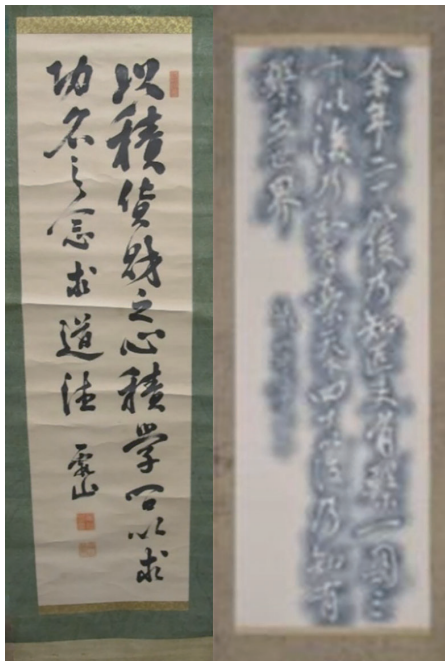 以積貨財之心積学問以求
功名之念求道徳
霞山
余年二十以後乃知匹夫有繋一国三
十以後乃知有繋天下四十以後乃知有
繋五世界